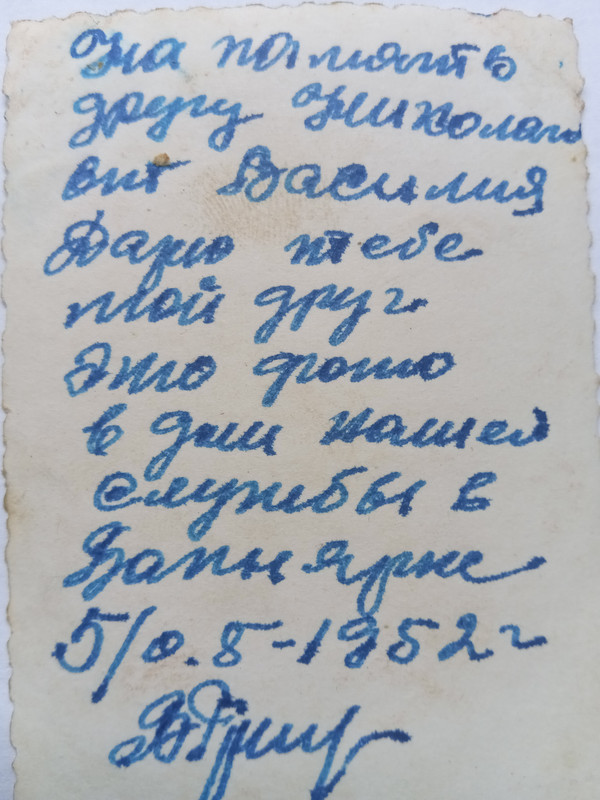 На память
другу Николаю
от Василия
Дарю тебе
мой друг
это фото
в дни нашей
службы в
Вапнярке
5/0.5-1952 г